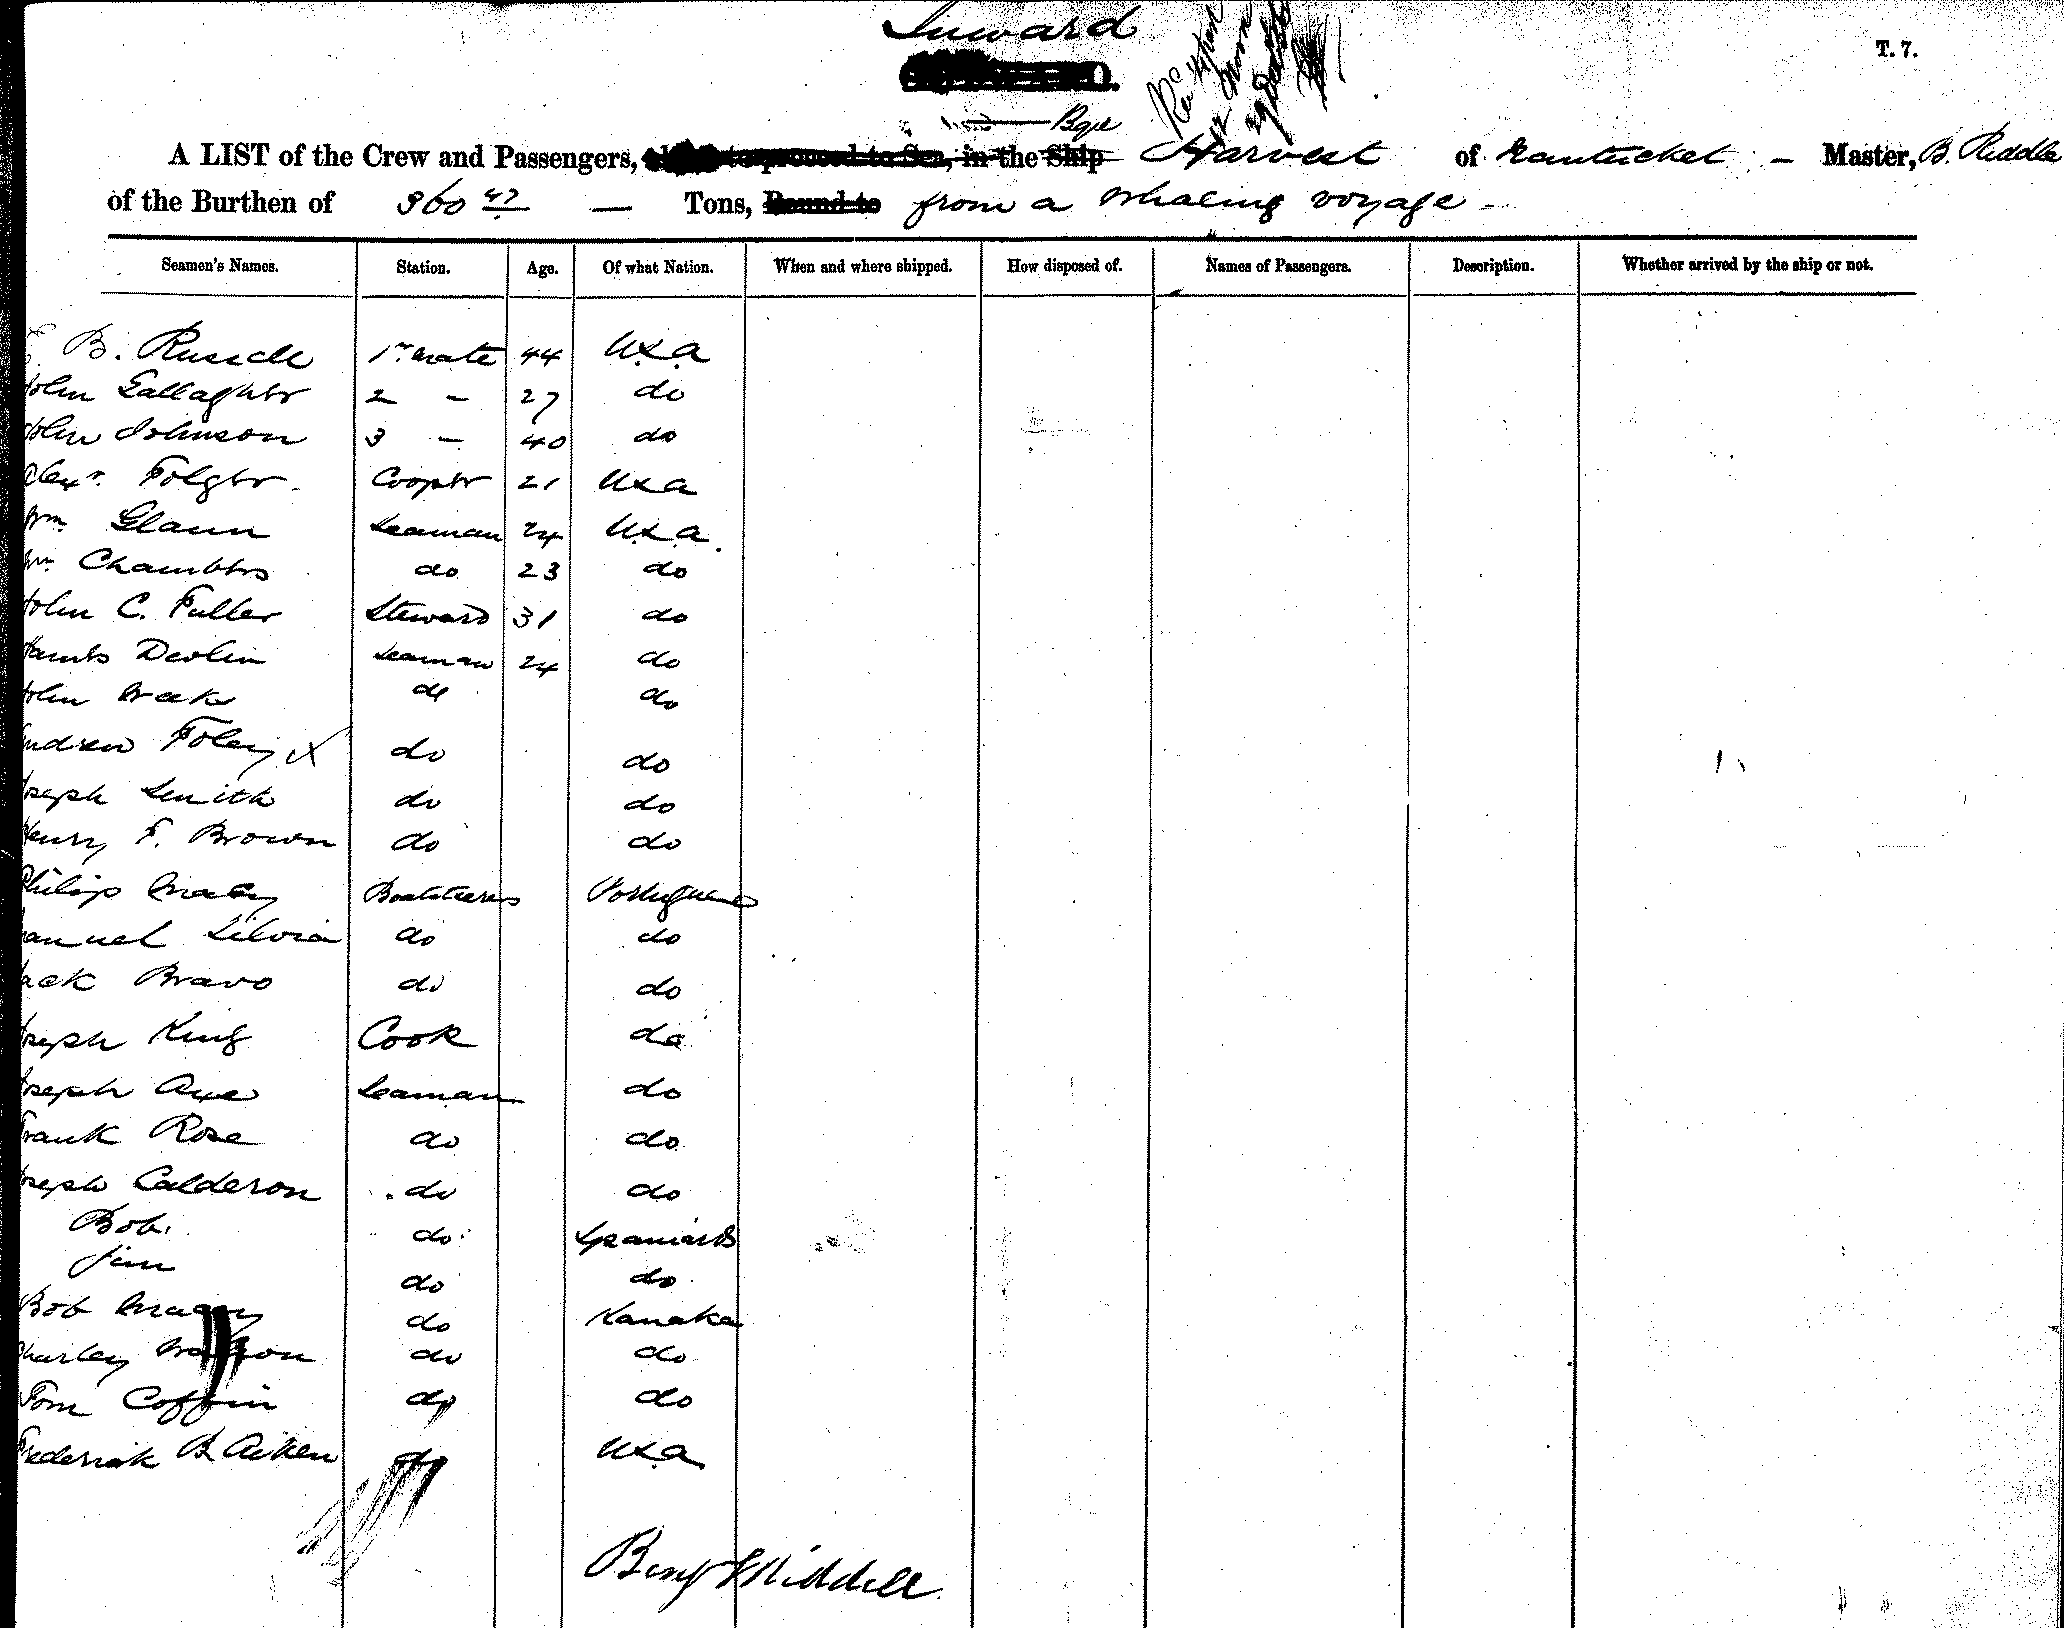 Inward
T. 7.
Bque
A LIST of the Crew and Passengers, to proceed to Sea, in the Ship Harvest of Nantucket - Master, B. Riddle
of the Burthen of 360 47 — Tons, Bound to from a Whaling voyage -
Seamen's Names. Station. Age. Of what Nation. When and where shipped. How disposed of. Names of Passengers. Description. Whether arrived by the ship or not.
B. Russell 1st mate 44 U.S.A
John Gallagher 2 - 27 do
John Johnson 3 - 40 do
Alexr. Folger Cooper 21 USA
Wm Glann Seaman 24 U.S.A.
Wm Chambers do 23 do
John C. Fuller Steward 31 do
James Devlin Seaman 24 do
John do do
Andrew Foley X do do
Joseph Smith do do
Henry F. Brown do do
Philip Boatsteerers Portuguese
Manuel Silvia do do
Jack Bravo do do
Joseph King Cook do
Joseph Axe Seaman do
Frank Rose do do
Joseph Calderon do do
Bob. do Spaniards
Jim do do
Bob do Kanaka
Charley do do
Tom Coffin do do
Frederick B. Aiken do USA
Benj Riddell